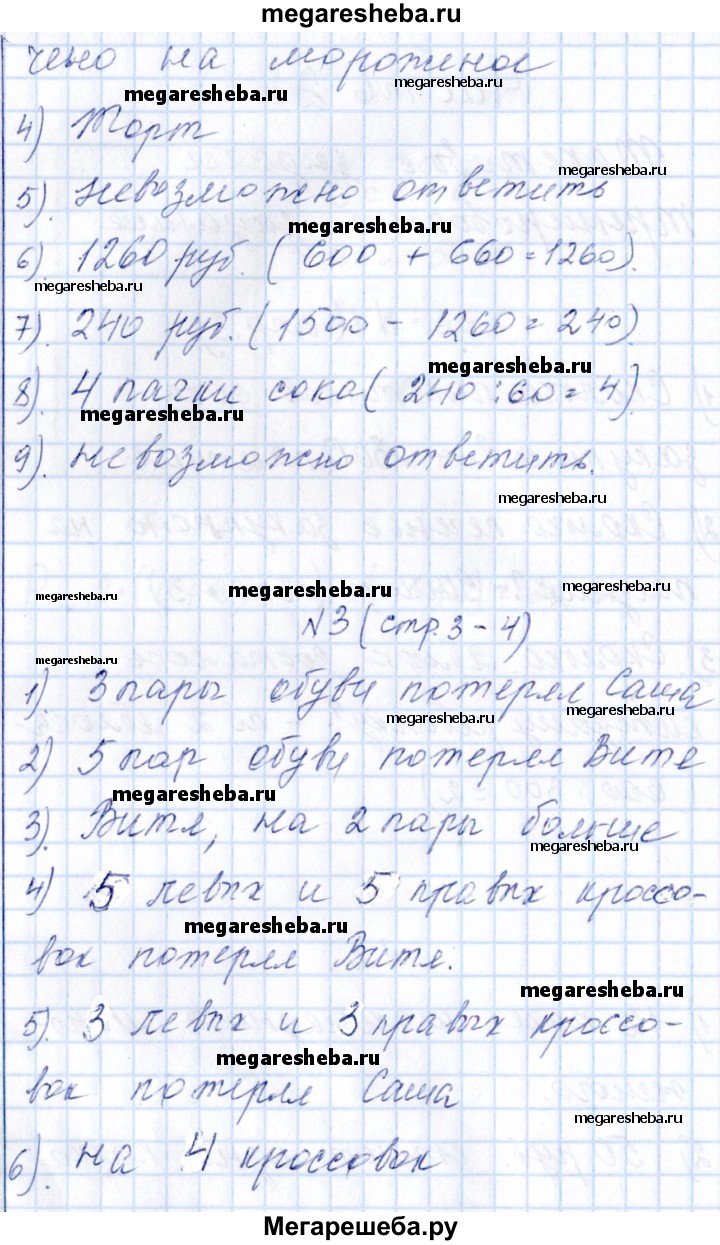 megaresheba.ru
чено на мороженое
megaresheba.ru
megaresheba.ru
4) Торт
megaresheba.ru
5). невозможно ответить
megaresheba.ru
6). 1260 руб. (600 + 660 = 1260).
megaresheba.ru
7). 240 руб. (1500 - 1260 = 240).
megaresheba.ru
8). 4 пачки сока (240 : 60 = 4)
megaresheba.ru
9). невозможно ответить.
megaresheba.ru
megaresheba.ru
megaresheba.ru
megaresheba.ru
№3 (стр. 3 - 4)
megaresheba.ru
1). 3 пары обуви потерял Саша
megaresheba.ru
megaresheba.ru
2) 5 пар обуви потерял Витя
megaresheba.ru
3). Витя, на 2 пары больше
megaresheba.ru
4) 5 левых и 5 правых кроссо-
megaresheba.ru
вок потерял Витя.
megaresheba.ru
5). 3 левых и 3 правых кроссо-
megaresheba.ru
вок потерял Саша
megaresheba.ru
6). на 4 кроссовок
Мегарешеба.ру